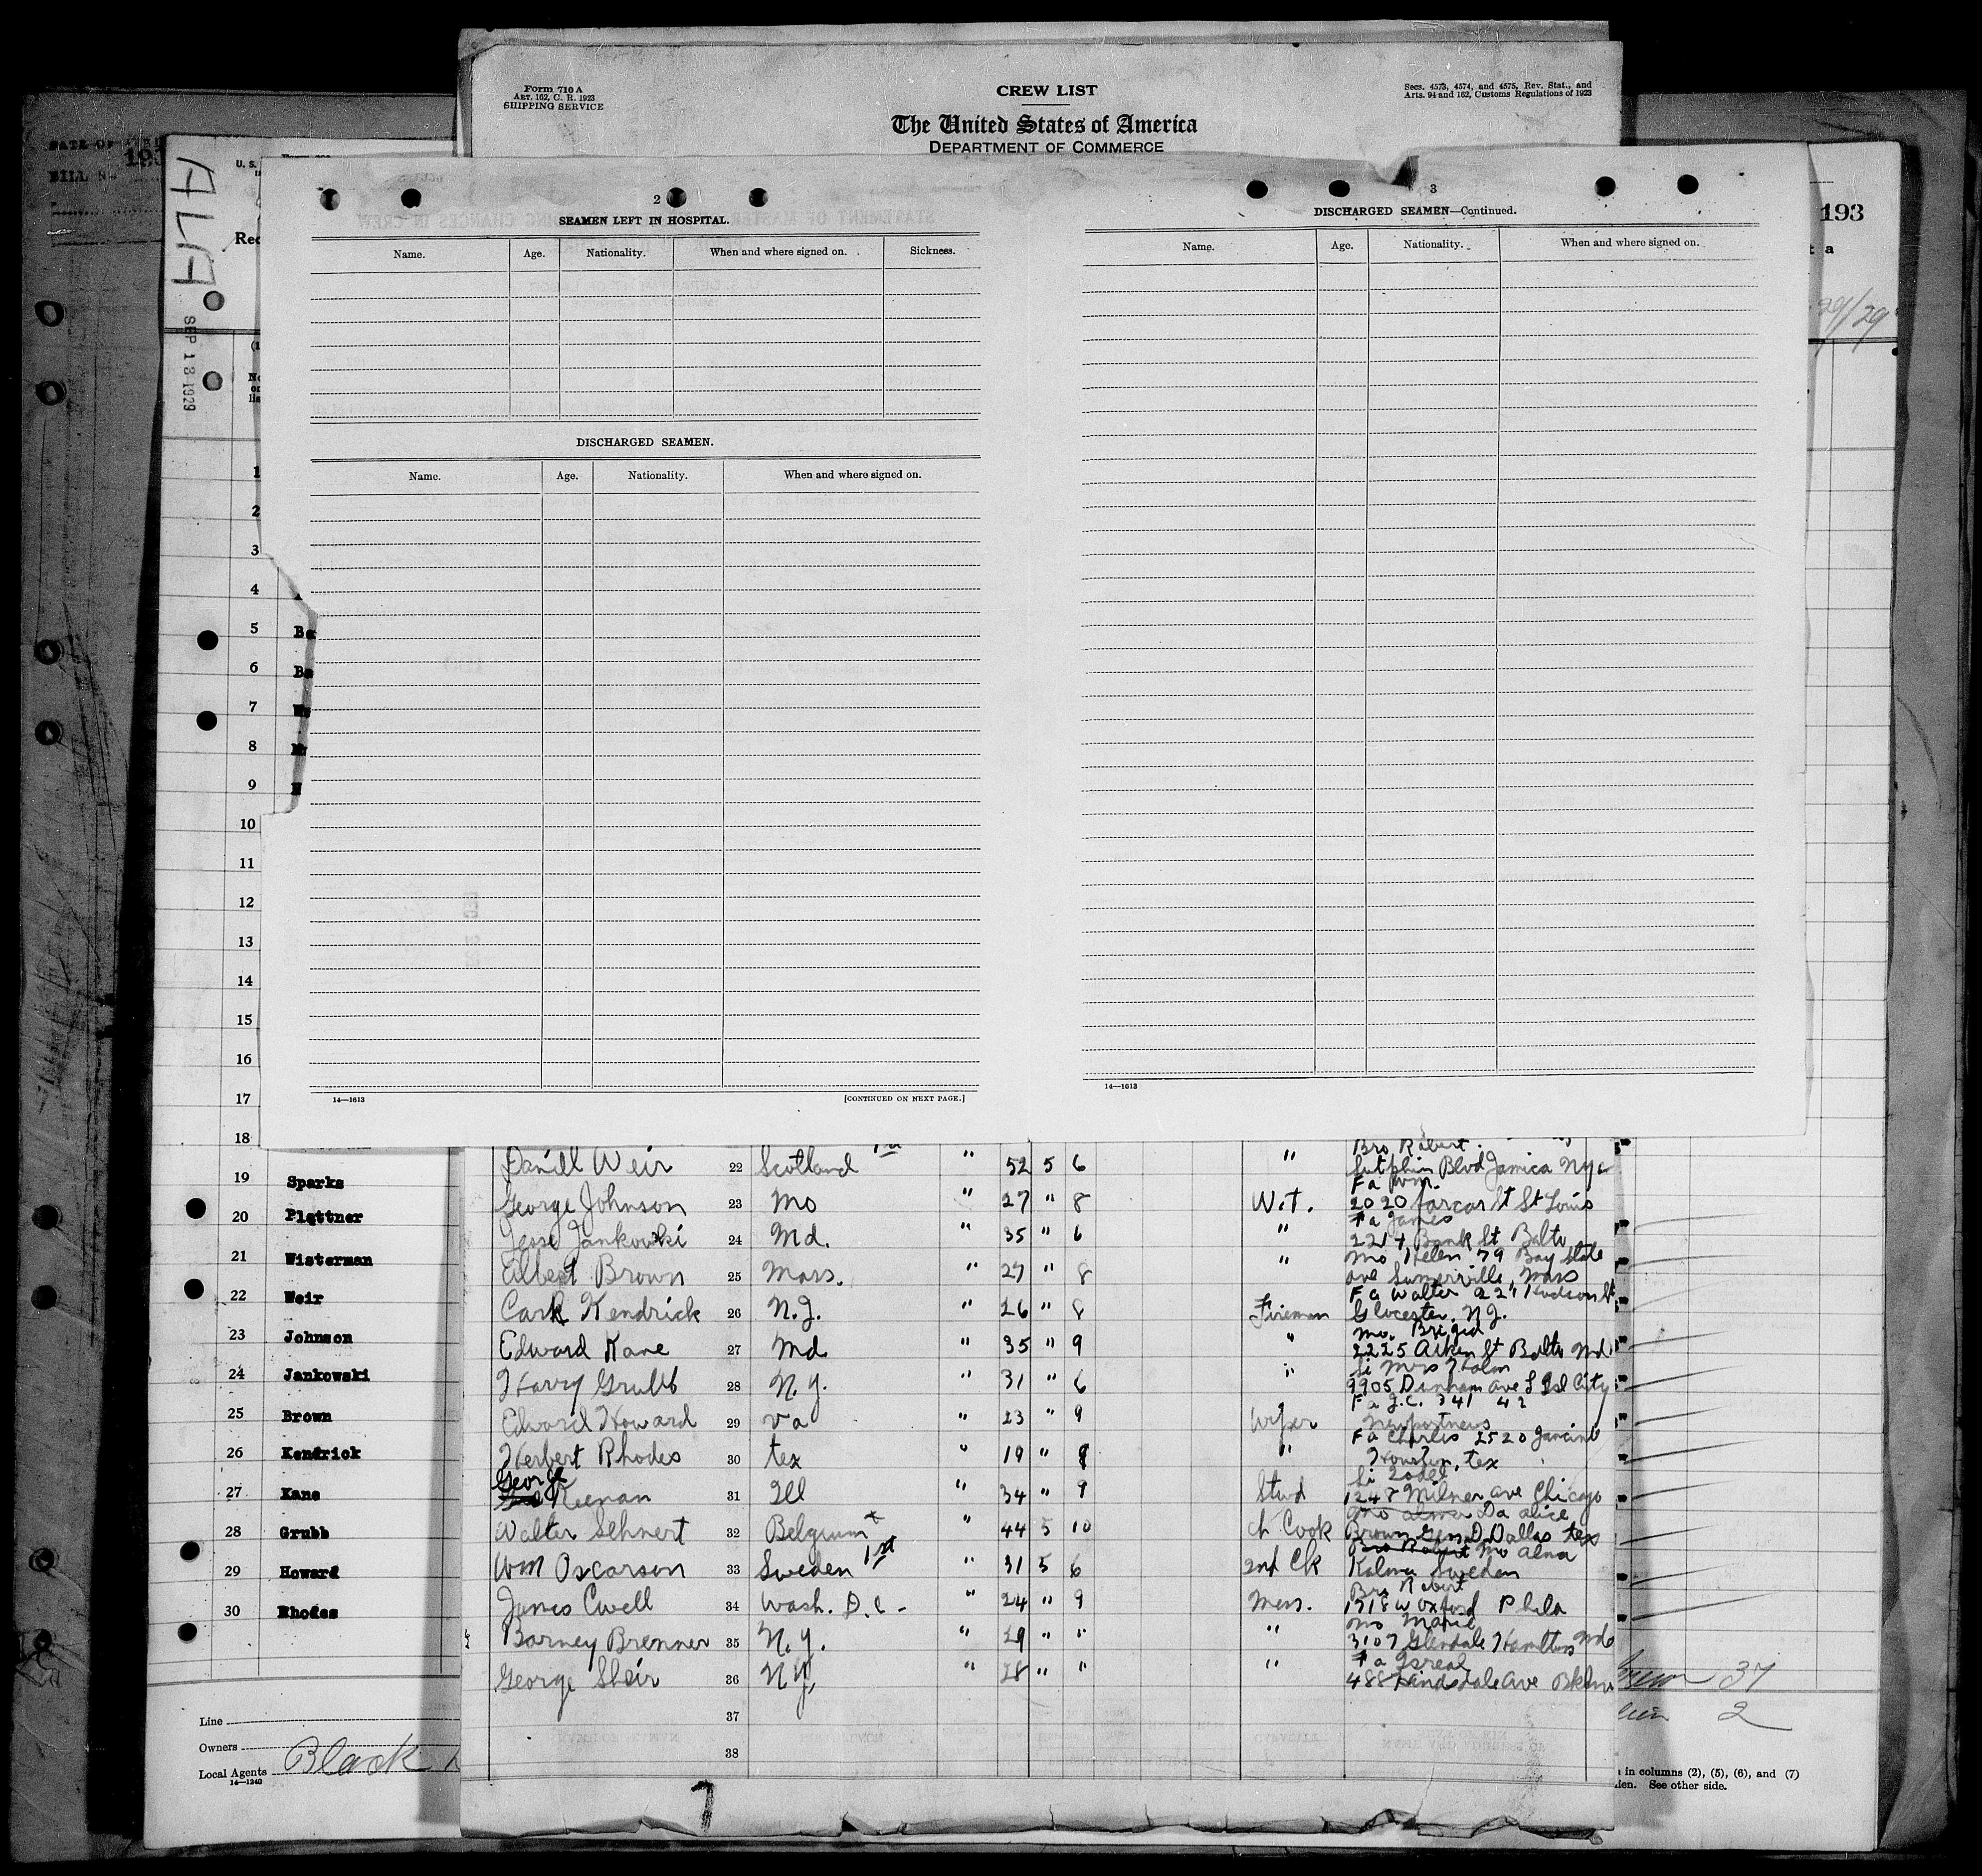 Form 710 A
ART. 162, C. R. 1923
SHIPPING SERVICE
CREW LIST
The United States of America
DEPARTMENT OF COMMERCE
Secs. 4573, 4574, and 4575, Rev. Stat., and
Arts. 94 and 162, Customs Regulations of 1923
193
29/29
U. S.
Rec
ALA
SEP 13 1929
2
SEAMEN LEFT IN HOSPITAL.
Name. Age. Nationality. When and where signed on. Sickness.
DISCHARGED SEAMEN.
Name. Age. Nationality. When and where signed on.
14—1613 [CONTINUED ON NEXT PAGE.]
3
DISCHARGED SEAMEN—Continued.
Name. Age. Nationality. When and where signed on.
14—1613
1
2
3
4
5
6
7
8
9
10
11
12
13
14
15
16
17
18
19 Sparks
20 Plettner
21 Wisterman
22 Weir
23 Johnson
24 Jankowski
25 Brown
26 Kendrick
27 Kane
28 Grubb
29 Howard
30 Rhodes
Line
Owners
Local Agents
14—1240
Black
Bro Robert
Daniel Weir 22 Scotland 1st " 52 5 6 " Sutphin Blvd Jamica NY
Fa Wm.
George Johnson 23 Mo " 27 " 8 W.T. 2020 St St Louis
Fa James
Jesse Jankowski 24 Md. " 35 " 6 " 2214 Bank St Balto
Mo Helen 79 Bay State
Albert Brown 25 Mass. " 27 " 8 " ave Sumerville, Mass
Fa Walter 221 Hudson St
Carl Kendrick 26 N.J. " 26 " 8 Fireman Glocester, N.J.
Mo. Briged
Edward Kane 27 Md " 35 " 9 " 2225 Aiken St Balto Md
Si Mrs Holm
Harry Grubb 28 N.Y. " 31 " 6 " 9905 Dunham ave L Isl City
Fa J.C. 341 42
Edward Howard 29 Va " 23 " 9 Wiper Newportnews
Fa Charles 2520
Herbert Rhodes 30 tex " 19 " 8 " Houston, tex
George
Keenan 31 Ill " 34 " 9 Stwd 1248 Milner ave Chicago
Da alice
Walter Sehnert 32 Belgium " 44 5 10 ch Cook Brown Gen D Dallas tex
Bro Robert Mo alma
Wm Oscarson 33 Sweden 1st " 31 5 6 2nd Ck Kalmar Sweden
Bro Robert
James Cwell 34 Wash. D.C. " 24 " 9 Mess. 1318 W Oxford Phila
Mo Marie
Barney Brenner 35 N.Y. " 29 " " " 3107 Glendale Hamilton Md
Fa Isreal
George Sheir 36 N.Y. " 28 " " " 488 Hindsdale Ave Bklin
37
38
7
37
2
in columns (2), (5), (6), and (7)
See other side.